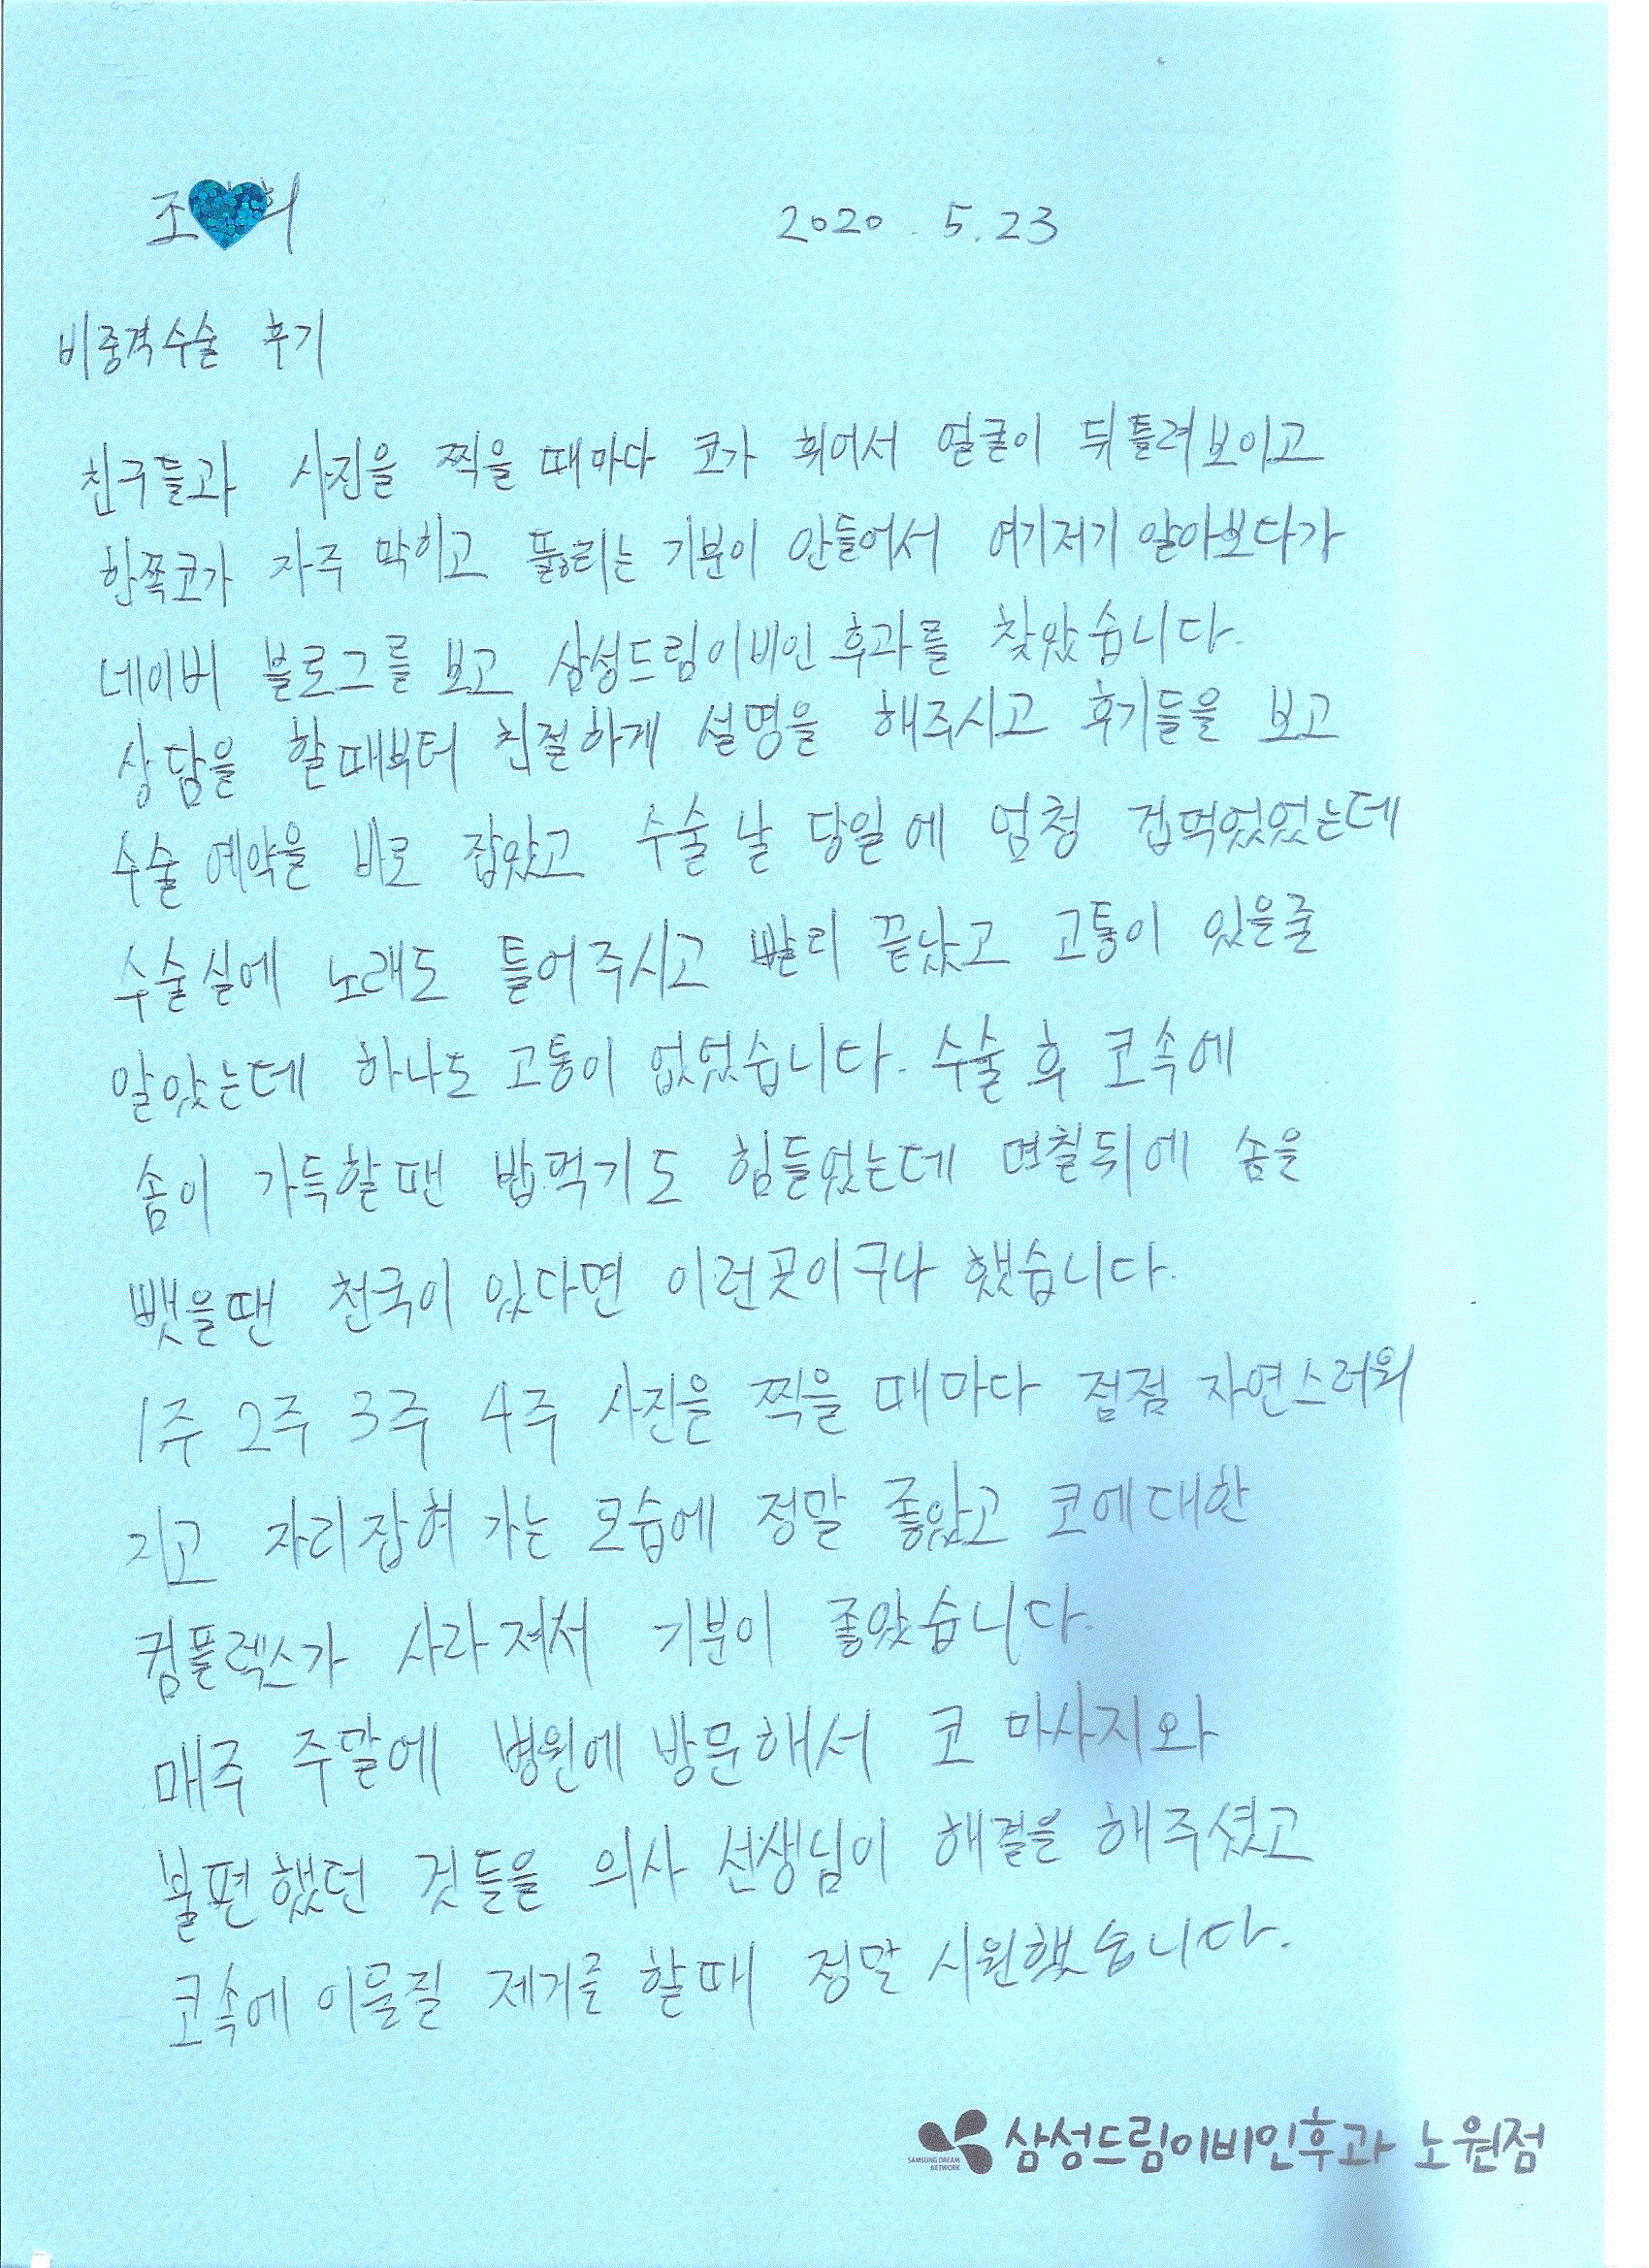 조 2020. 5. 23
비중격수술 후기
친구들과 사진을 찍을 때마다 코가 휘어서 얼굴이 뒤틀려보이고
한쪽코가 자주 막히고 뚫리는 기분이 안들어서 여기저기 알아보다가
네이버 블로그를 보고 삼성드림이비인후과를 찾았습니다.
상담을 할때부터 친절하게 설명을 해주시고 후기들을 보고
수술 예약을 바로 잡았고 수술 날 당일에 엄청 겁먹었었는데
수술실에 노래도 틀어주시고 빨리 끝났고 고통이 있을줄
알았는데 하나도 고통이 없었습니다. 수술 후 코속에
솜이 가득할땐 밥먹기도 힘들었는데 며칠뒤에 솜을
뺐을땐 천국이 있다면 이런곳이구나 했습니다.
1주 2주 3주 4주 사진을 찍을 때마다 점점 자연스러워
지고 자리잡혀 가는 모습에 정말 좋았고 코에대한
컴플렉스가 사라져서 기분이 좋았습니다.
매주 주말에 병원에 방문해서 코 마사지와
불편했던 것들을 의사 선생님이 해결을 해주셨고
코속에 이물질 제거를 할때 정말 시원했습니다.
SAMSUNG DREAM NETWORK 삼성드림이비인후과 노원점